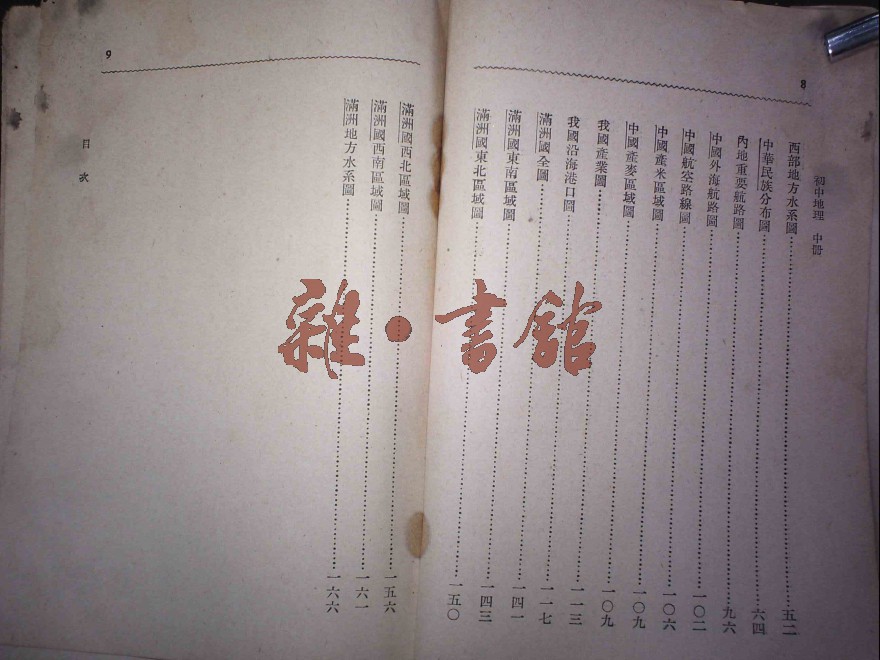 8
初中地理 中冊
西部地方水系圖……五二
中華民族分布圖……六四
內地重要航路圖……九六
中國外海航路圖……一〇二
中國航空路線圖……一〇六
中國產米區域圖……一〇九
中國產麥區域圖……一〇九
我國產業圖……一一三
我國沿海港口圖……一一七
滿洲國全圖……一四一
滿洲國東南區域圖……一四三
滿洲國東北區域圖……一五〇
滿洲國西北區域圖……一五六
滿洲國西南區域圖……一六一
滿洲地方水系圖……一六六
目次
9
雜・書館